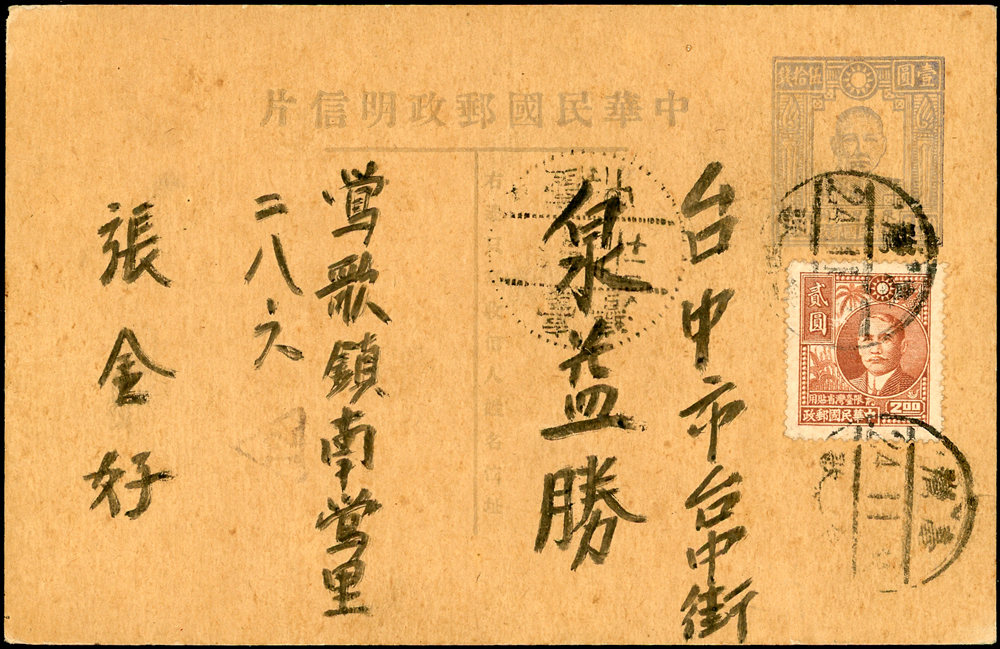 中華民國郵政明信片
壹圓
伍拾錢
貳圓
限臺灣省貼用
2.00
中華民國郵政
台中市台中街
泉益勝
鶯歌鎮南鶯里
二八六
張金好
24.11
24.11